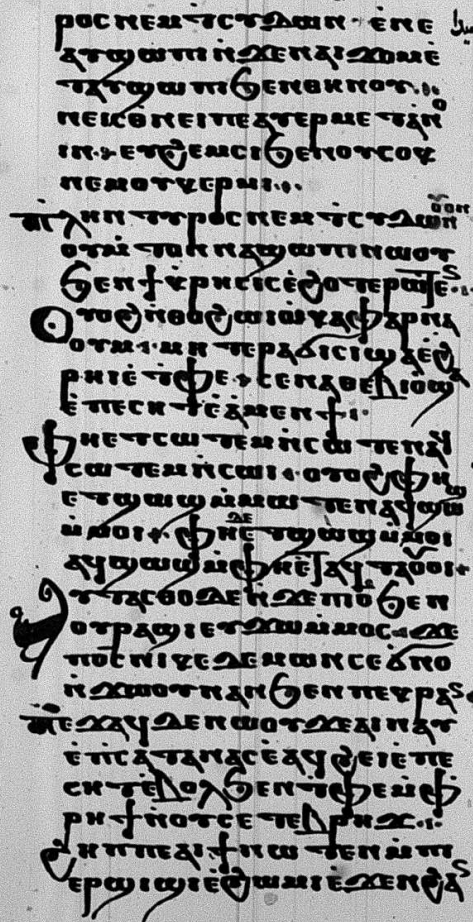 ⲣⲟⲥⲛⲉⲙⲧⲥⲓⲇⲱⲛ· ⲉⲛⲉ
ⲁⲩϣⲱⲡⲓⲛϫⲉⲛⲁⲓϫⲟⲙⲉ
ⲧⲁⲩϣⲱⲡⲓϧⲉⲛⲑⲏⲛⲟⲩ··
ⲡⲉⲁⲩⲉⲣⲙⲉⲧⲁⲛⲟ
ⲓⲛ· ⲉⲩϩⲉⲙⲥⲓϧⲉⲛⲟⲩⲥⲟⲕ
ⲛⲉⲙⲟⲩⲕⲉⲣⲙⲓ··
ⲡⲗⲏⲛⲧⲩⲣⲟⲥⲛⲉⲙⲧⲥⲓⲇⲱⲛ
ⲟⲩⲙⲧⲟⲛⲛⲁϣⲱⲡⲓⲛⲱⲟⲩ
ϧⲉⲛϯⲕⲣⲓⲥⲓⲥⲉϩⲟⲧⲉⲣⲱⲧⲉ
ⲟⲩⲟϩⲛⲑⲟϩⲱⲓⲕⲁⲫⲁⲣⲛⲁ
ⲟⲩⲙ· ⲙⲏⲧⲉⲣⲁϭⲓⲥⲓϣⲁⲉϩ
ⲣⲏⲓⲉⲧⲫⲉ· ⲥⲉⲛⲁⲑⲉⲃⲓⲱϣⲁ
ⲉⲡⲉⲥⲏⲧⲉⲁⲙⲉⲛϯ·
ⲫⲏⲉⲧⲥⲱⲧⲉⲙⲛⲥⲱⲧⲉⲛⲁϥ
ⲥⲱⲧⲉⲙⲛⲥⲱⲓ· ⲟⲩⲟϩⲫⲏ
ⲉⲧϣⲱϣⲙⲙⲱⲧⲉⲛⲁϥϣⲱϣ
ⲙⲙⲟⲓ· ⲫⲏⲇⲉⲉⲧϣⲱϣⲙⲙⲟⲓ
ⲁϥϣⲱϣⲙⲫⲏⲉⲧⲁϥⲧⲁⲟⲩⲟⲓ·
ⲁⲩⲧⲁⲥⲑⲟⲇⲉⲛϫⲉⲡⲓⲟ̅ϧⲉⲛ
ⲟⲩⲣⲁϣⲓⲉⲩϫⲱⲙⲙⲟⲥϫⲉ
ⲡⲟⲥⲛⲓⲕⲉⲇⲉⲙⲱⲛⲥⲉϭⲛⲟ
ⲛϫⲱⲟⲩⲛⲁⲛϧⲉⲛⲡⲉⲕⲣⲁⲛ
ⲡⲉϫⲁϥⲇⲉⲛⲱⲟⲩϫⲉⲁⲓⲛⲁⲩ
ⲉⲡⲥⲁⲧⲁⲛⲁⲥⲉⲁϥϩⲉⲓⲉⲡⲉ
ⲥⲏⲧⲉⲃⲟⲗϧⲉⲛⲧⲫⲉⲙⲫ
ⲣⲏϯⲛⲟⲩⲥⲉⲧⲉⲃⲣⲏϫ··
ϩⲏⲡⲡⲉⲁⲓϯⲛⲱⲧⲉⲛⲙⲡⲓ
ⲉⲣϣⲓϣⲓⲉϩⲱⲙⲓⲉϫⲉⲛϩⲁⲛ